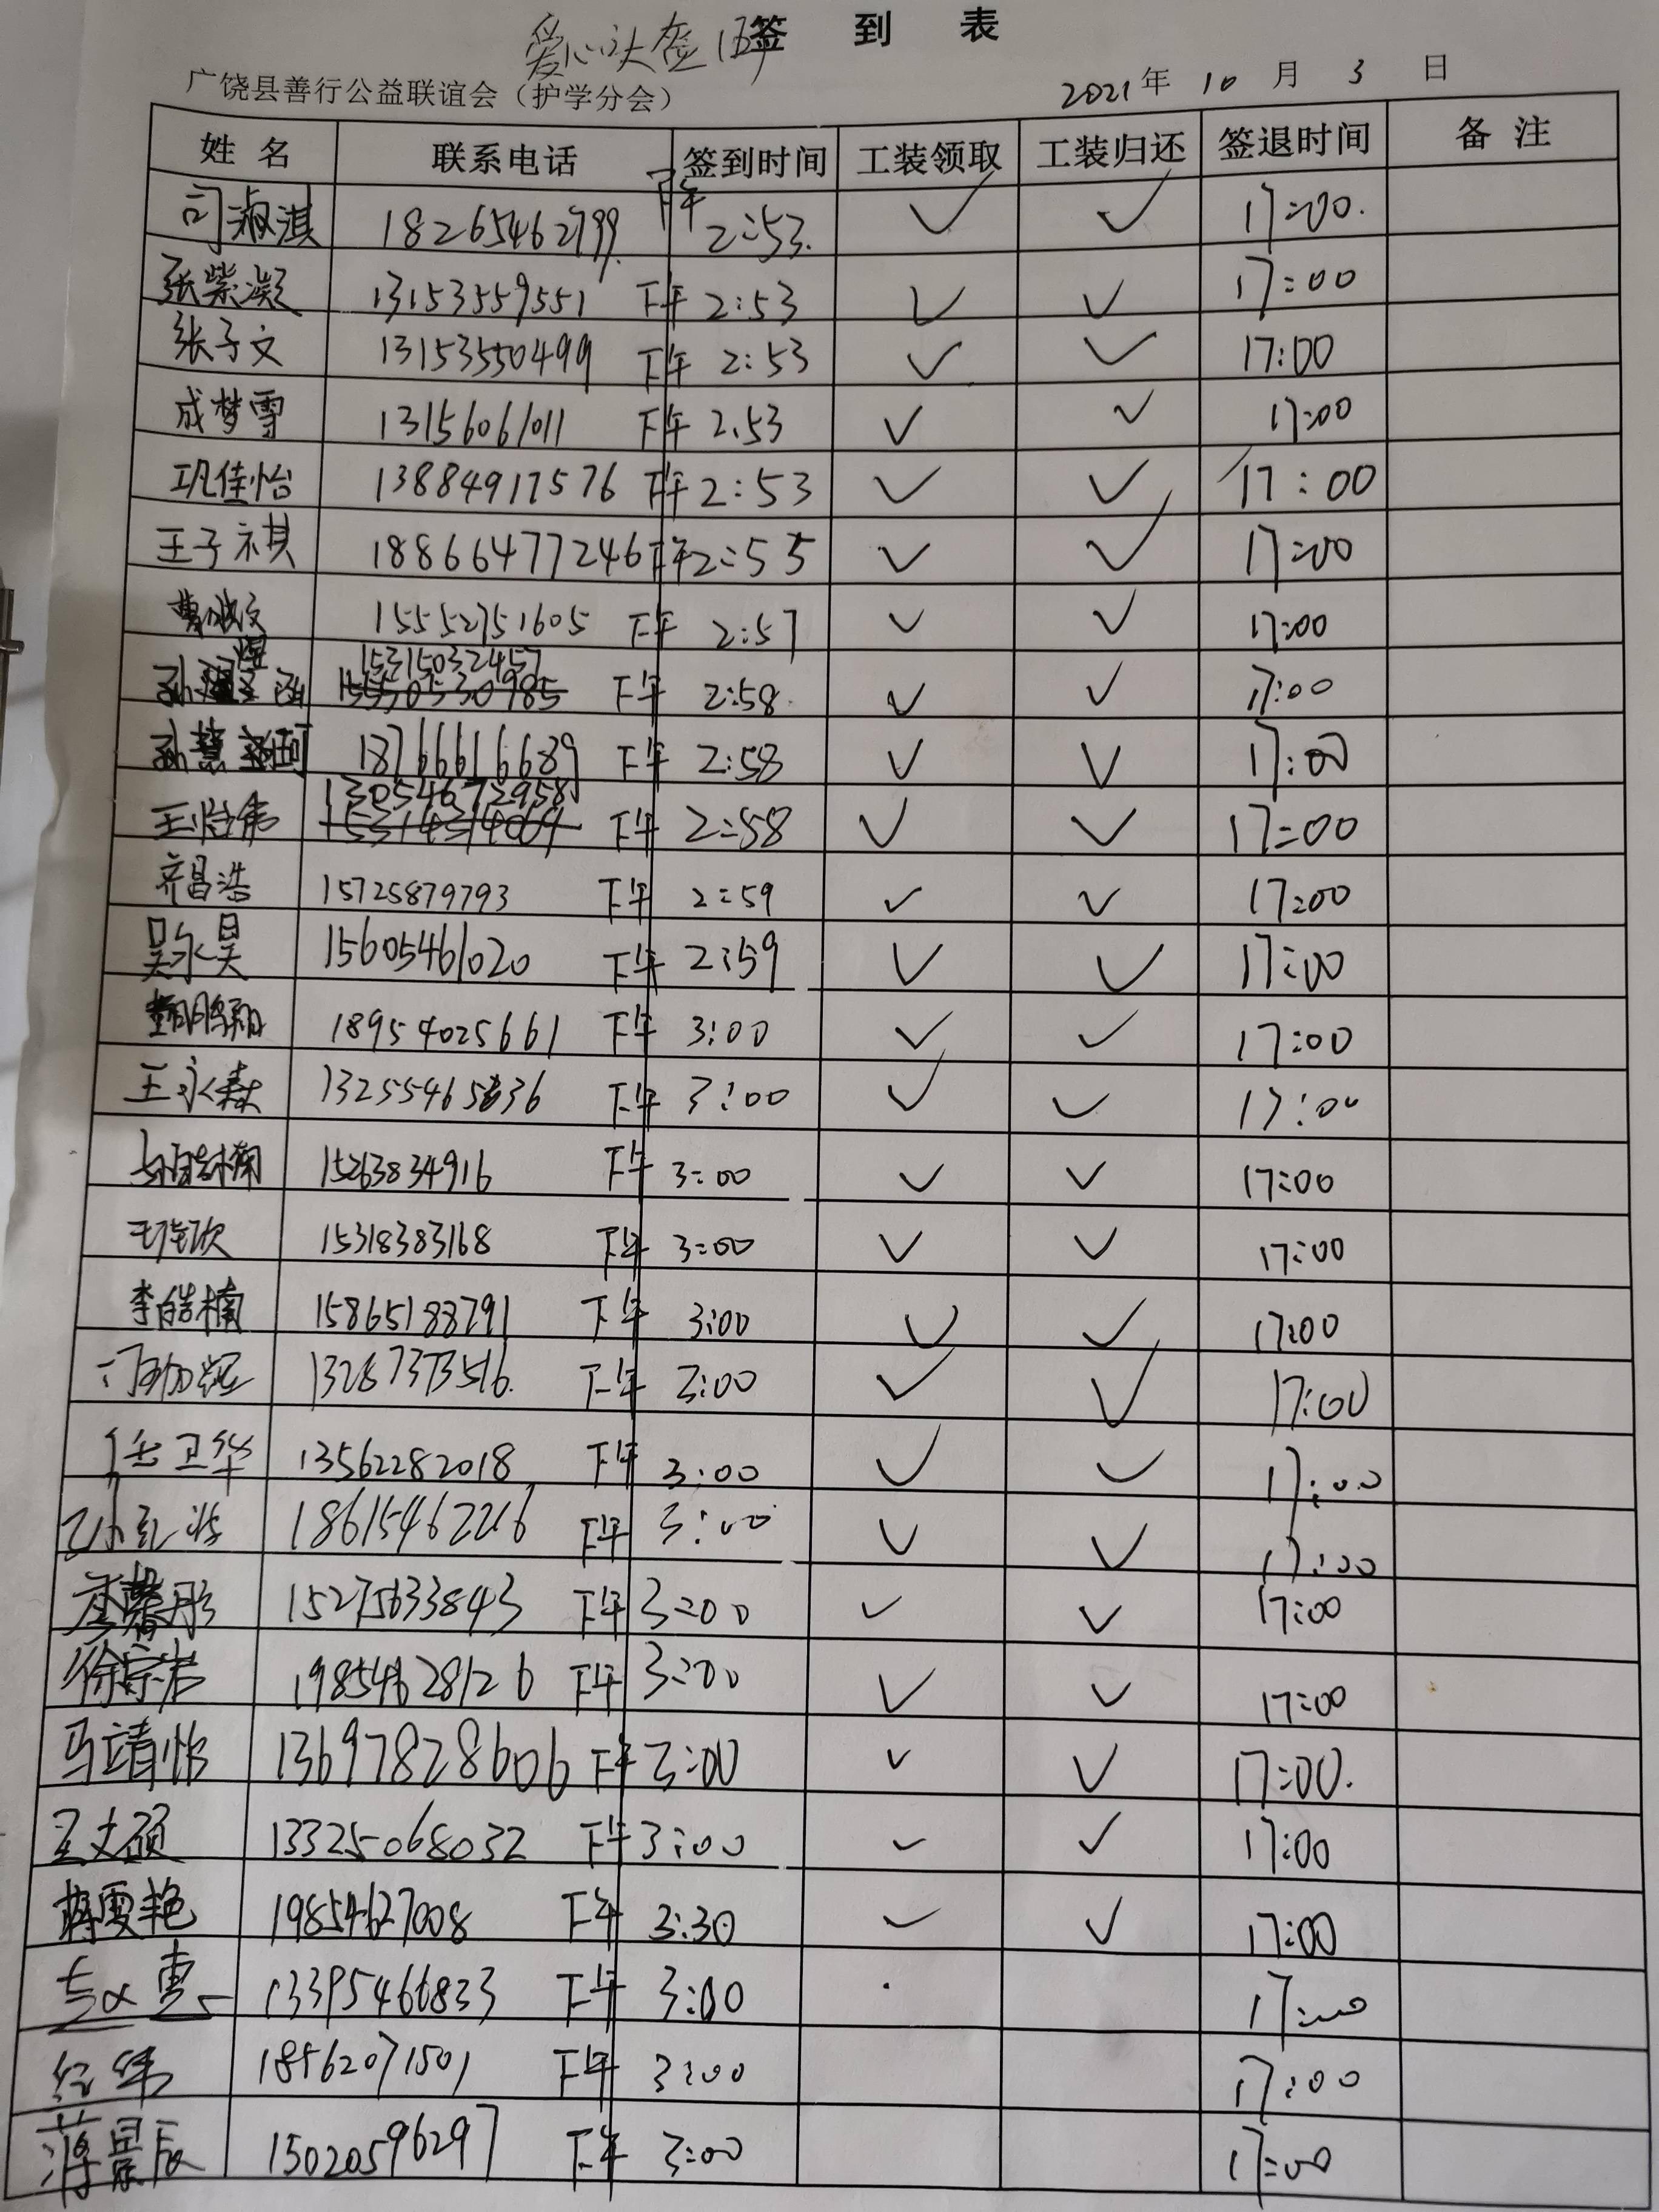 爱心头盔 签到表
广饶县善行公益联谊会（护学分会） 2021年 10月 3日
姓名 联系电话 签到时间 工装领取 工装归还 签退时间 备注
司淑淇 18265462799 下午 2:53 ✓ ✓ 17:00
张紫凝 13153559551 下午 2:53 ✓ ✓ 17:00
张子文 13153550499 下午 2:53 ✓ ✓ 17:00
成梦雪 13156061011 下午 2:53 ✓ ✓ 17:00
巩佳怡 13884917576 下午 2:53 ✓ ✓ 17:00
王子祺 18866477246 下午 2:55 ✓ ✓ 17:00
15552751605 下午 2:57 ✓ ✓ 17:00
15315032457
孙 15550530985 下午 2:58 ✓ ✓ 17:00
孙慧珂 18766616689 下午 2:58 ✓ ✓ 17:00
13054672958
15314314069 下午 2:58 ✓ ✓ 17:00
齐昌浩 15725879793 下午 2:59 ✓ ✓ 17:00
吴永昊 15605461020 下午 2:59 ✓ ✓ 17:00
18954025661 下午 3:00 ✓ ✓ 17:00
王永森 下午 3:00 ✓ ✓ 17:00
15263834916 下午 3:00 ✓ ✓ 17:00
15318383168 下午 3:00 ✓ ✓ 17:00
李皓楠 15865188791 下午 3:00 ✓ ✓ 17:00
13287373516 下午 3:00 ✓ ✓ 17:00
任卫华 13562282018 下午 3:00 ✓ ✓ 17:00
18615462216 下午 3:00 ✓ ✓ 17:00
李馨彤 15275633843 下午 3:00 ✓ ✓ 17:00
徐宗岩 19854628126 下午 3:00 ✓ ✓ 17:00
马靖怡 13697828606 下午 3:00 ✓ ✓ 17:00
王文硕 13325068032 下午 3:00 ✓ ✓ 17:00
蒋雯艳 19854627008 下午 3:30 ✓ ✓ 17:00
13395466833 下午 3:00 17:00
纪伟 18562071501 下午 3:00 17:00
蒋景辰 15020596297 下午 3:00 17:00